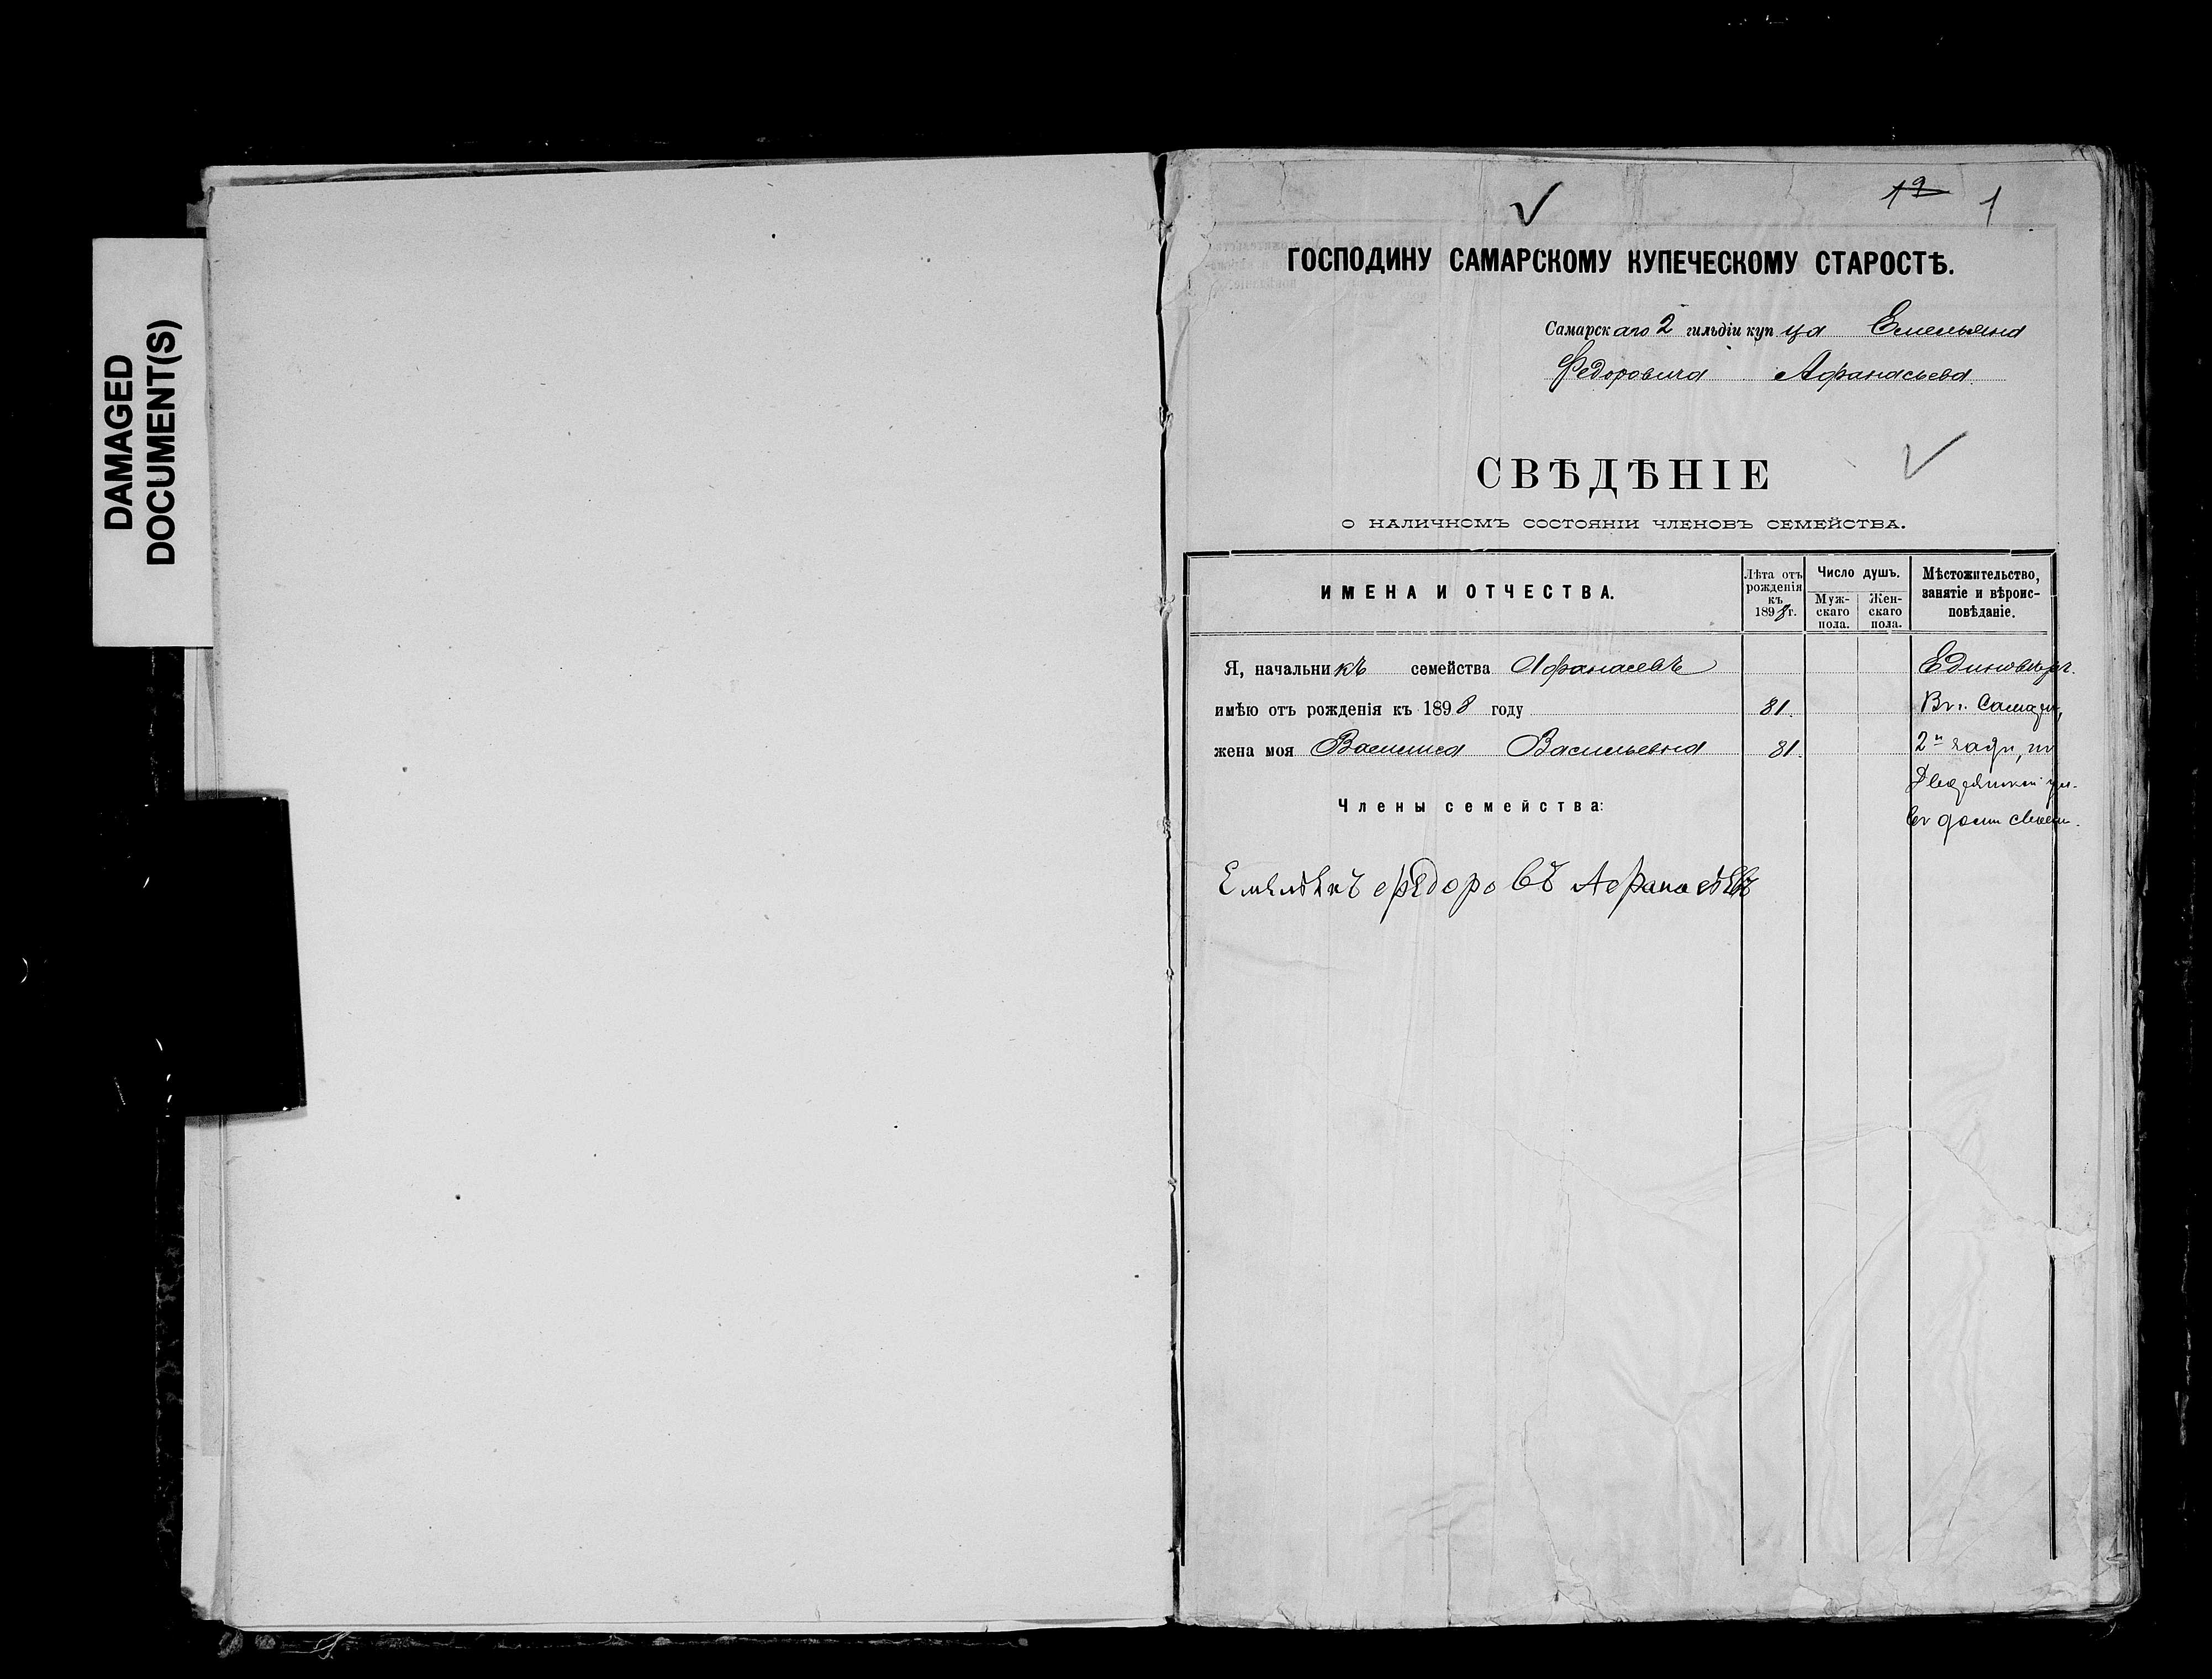 DAMAGED
DOCUMENT(S)
19 1
ГОСПОДИНУ САМАРСКОМУ КУПЕЧЕСКОМУ СТАРОСТѢ.
Самарскаго 2 гильдіи купца Емельяна
Федоровича Афанасьева
СВѢДѢНІЕ
О НАЛИЧНОМЪ СОСТОЯНІИ ЧЛЕНОВЪ СЕМЕЙСТВА.
ИМЕНА И ОТЧЕСТВА.
Лѣта отъ рожденія къ 1898 г.
Число душъ.
Мужскаго пола.
Женскаго пола.
Мѣстожительство, занятіе и вѣроисповѣданіе.
Я, начальникъ семейства Афанасевъ Единовѣр.
имѣю отъ рожденія къ 1898 году 81. Въ г. Самарѣ,
жена моя Василиса Васильевна 81. 2й части, по
Дворянской ул.
Члены семейства: въ домѣ своем.
Емельянъ Федоровъ Афанасьевъ